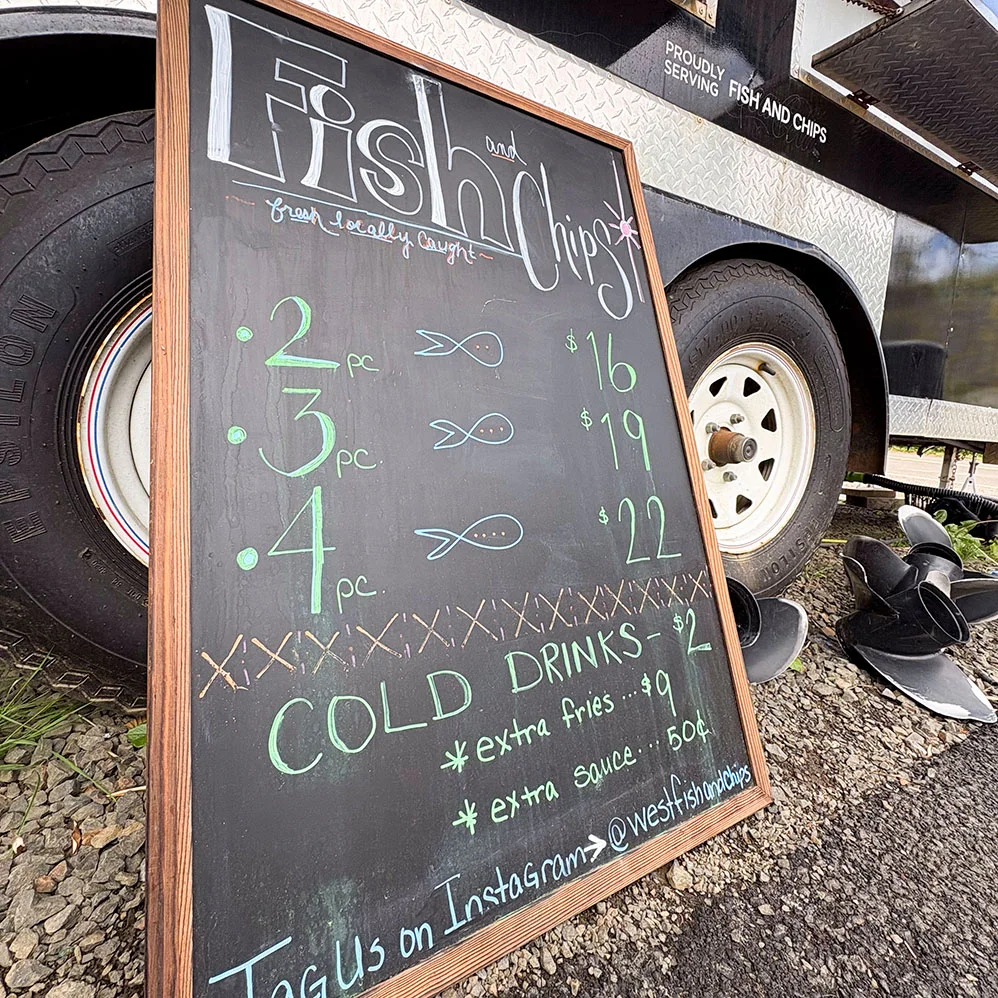 Fish and Chips!
~ fresh locally caught ~
• 2 pc $16
• 3 pc. $19
• 4 pc. $22
COLD DRINKS - $2
* extra fries ... $9
* extra sauce ... 50¢
Tag Us on Instagram → @westfishandchips
PROUDLY
SERVING FISH AND CHIPS